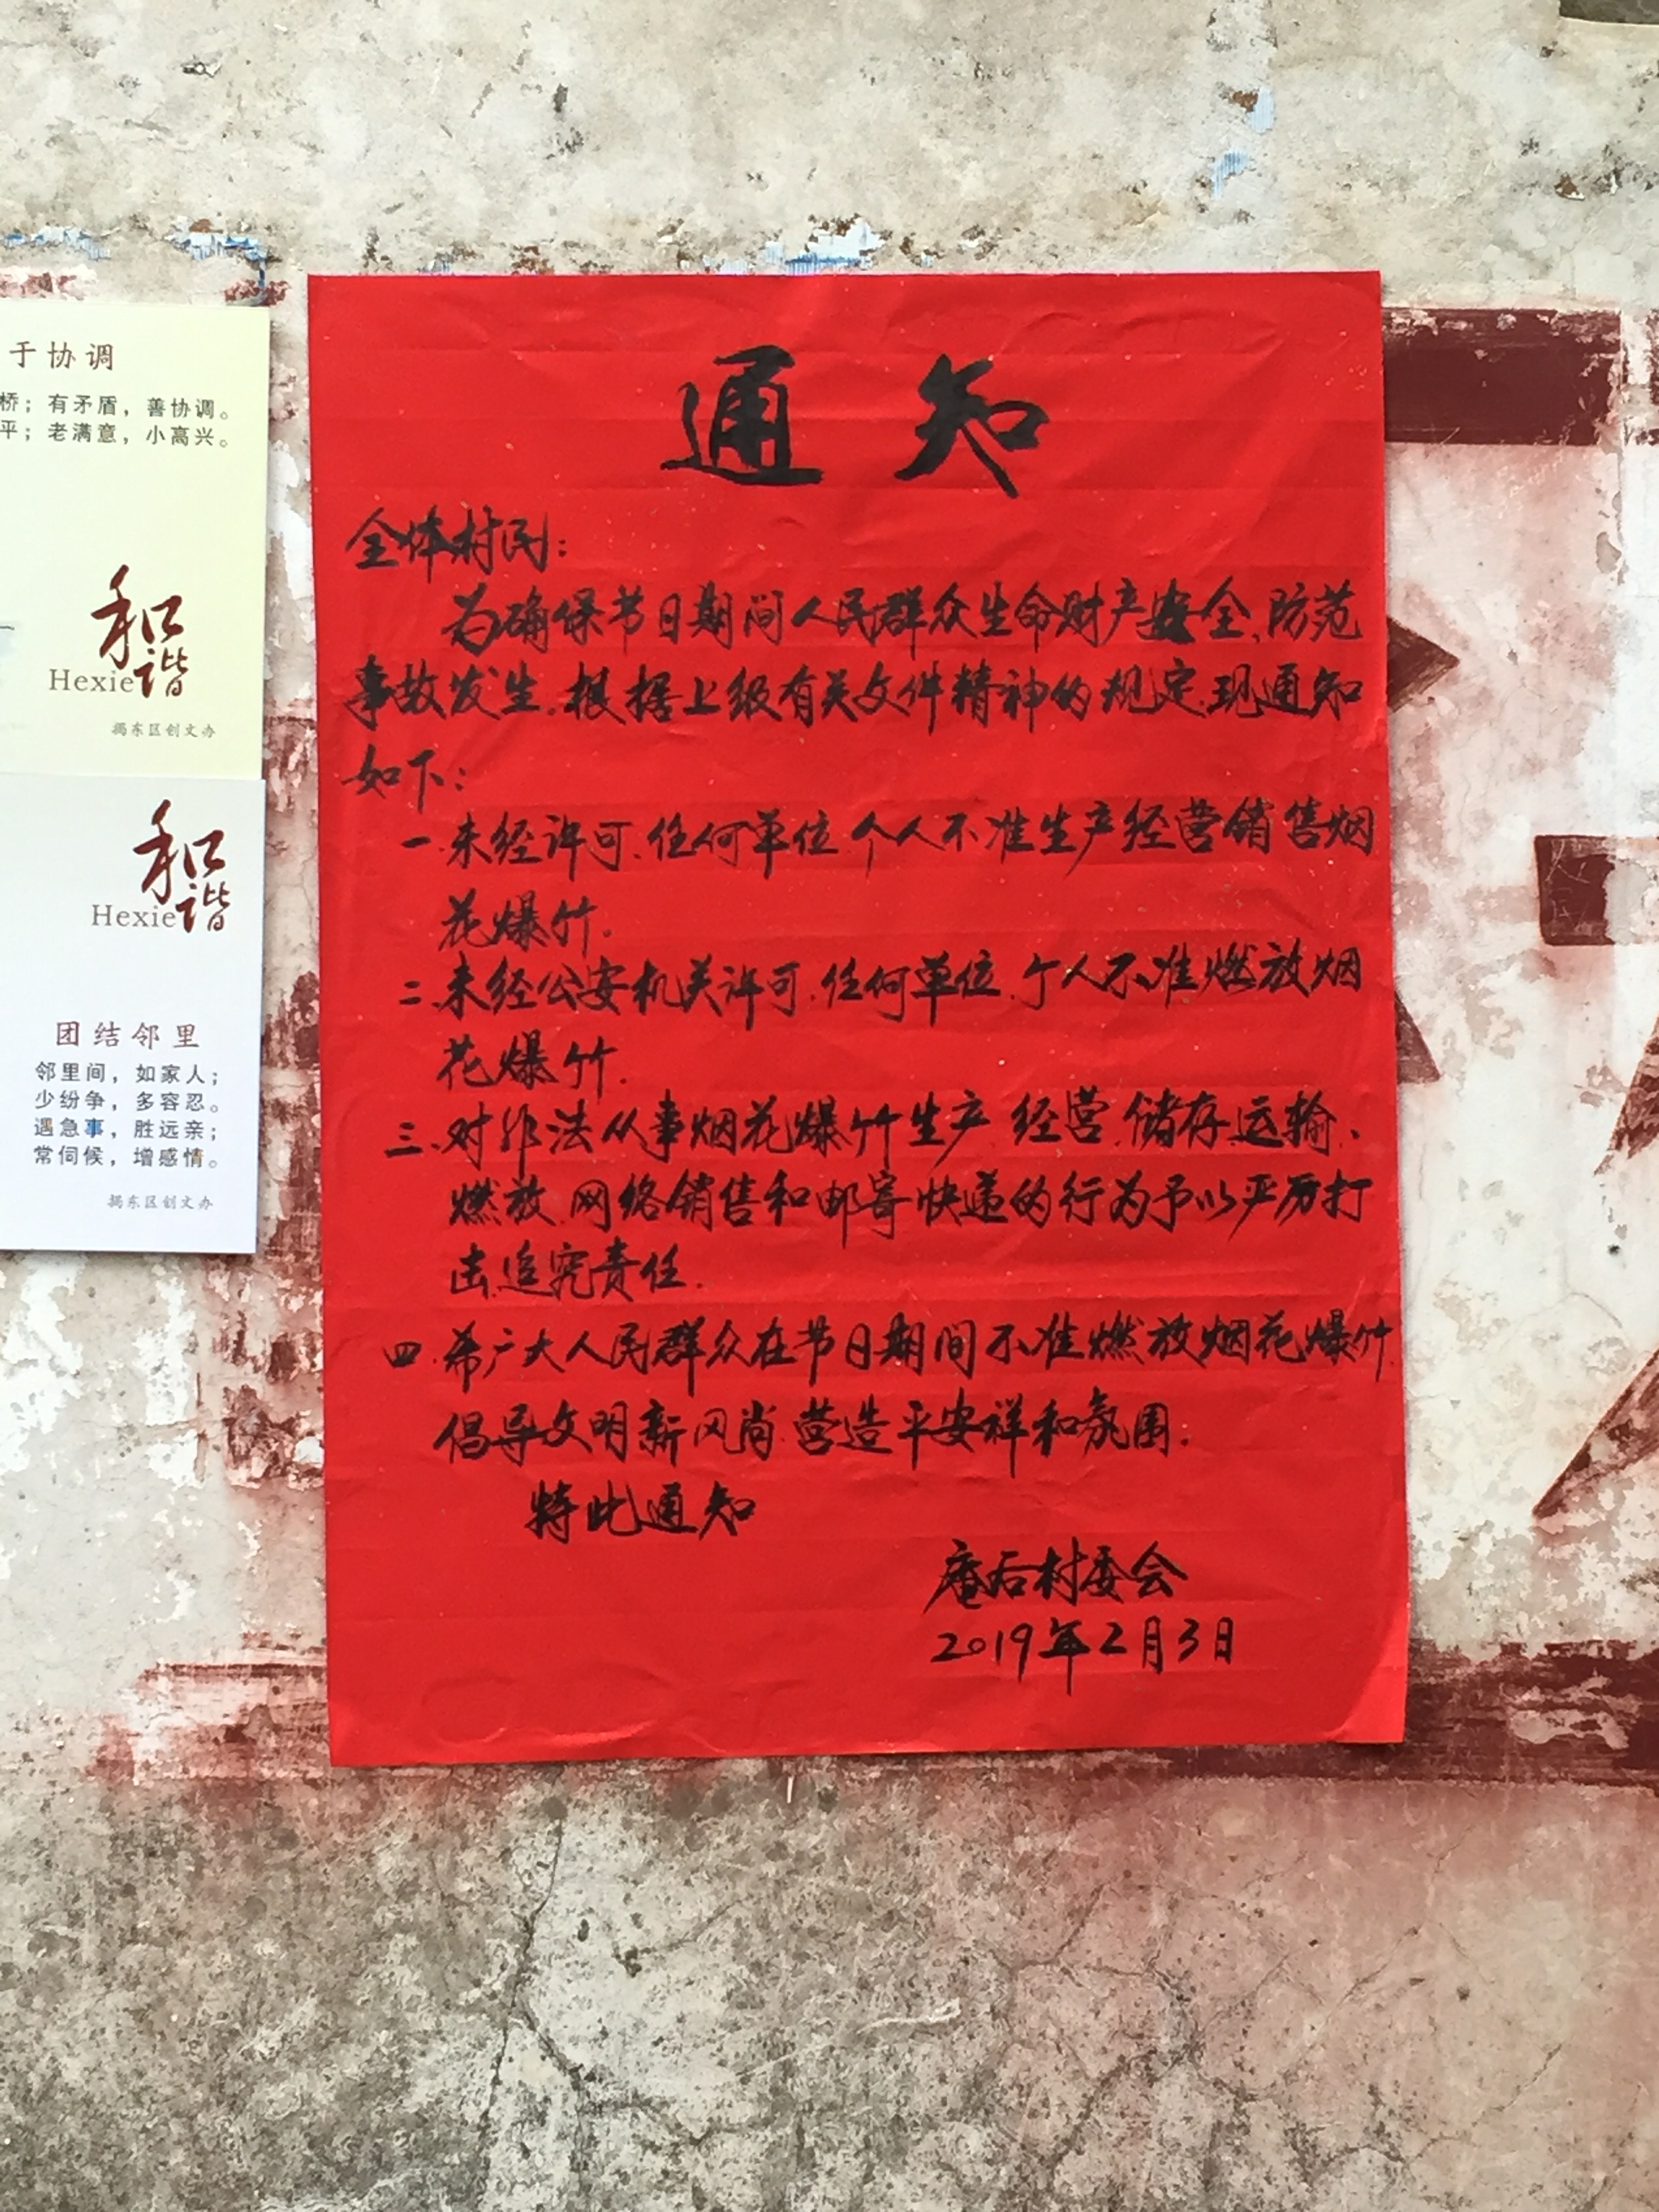 于协调
桥；有矛盾，善协调。
平；老满意，小高兴。
和谐
Hexie
揭东区创文办
和谐
Hexie
团结邻里
邻里间，如家人；
少纷争，多容忍。
遇急事，胜远亲；
常伺候，增感情。
揭东区创文办
通知
全体村民：
为确保节日期间人民群众生命财产安全、防范
事故发生.根据上级有关文件精神的规定.现通知
如下：
一.未经许可.任何单位个人不准生产经营销售烟
花爆竹.
二.未经公安机关许可.任何单位.个人不准燃放烟
花爆竹.
三.对非法从事烟花爆竹生产经营.储存运输、
燃放.网络销售和邮寄快递的行为予以严厉打
击.追究责任.
四.希广大人民群众在节日期间不准燃放烟花爆竹.
倡导文明新风尚.营造平安祥和氛围.
特此通知
庵后村委会
2019年2月3日